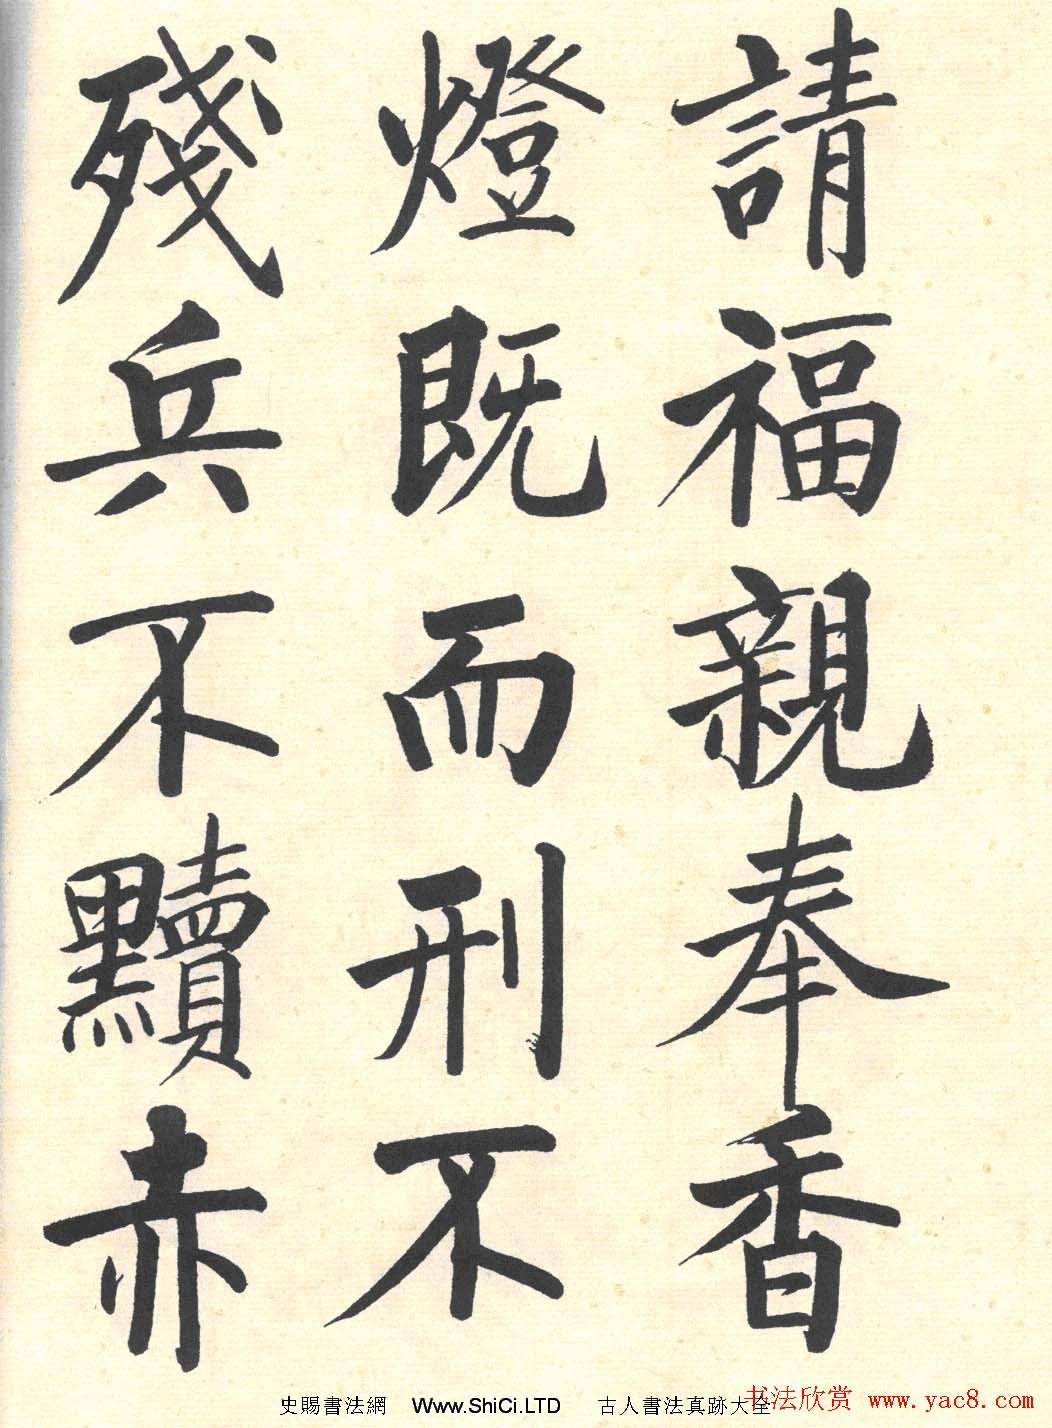 請福親奉香
燈既而刑不
殘兵不黷赤
史賜書法網 Www.ShiCi.LTD 古人書法真跡大全
书法欣赏 www.yac8.com